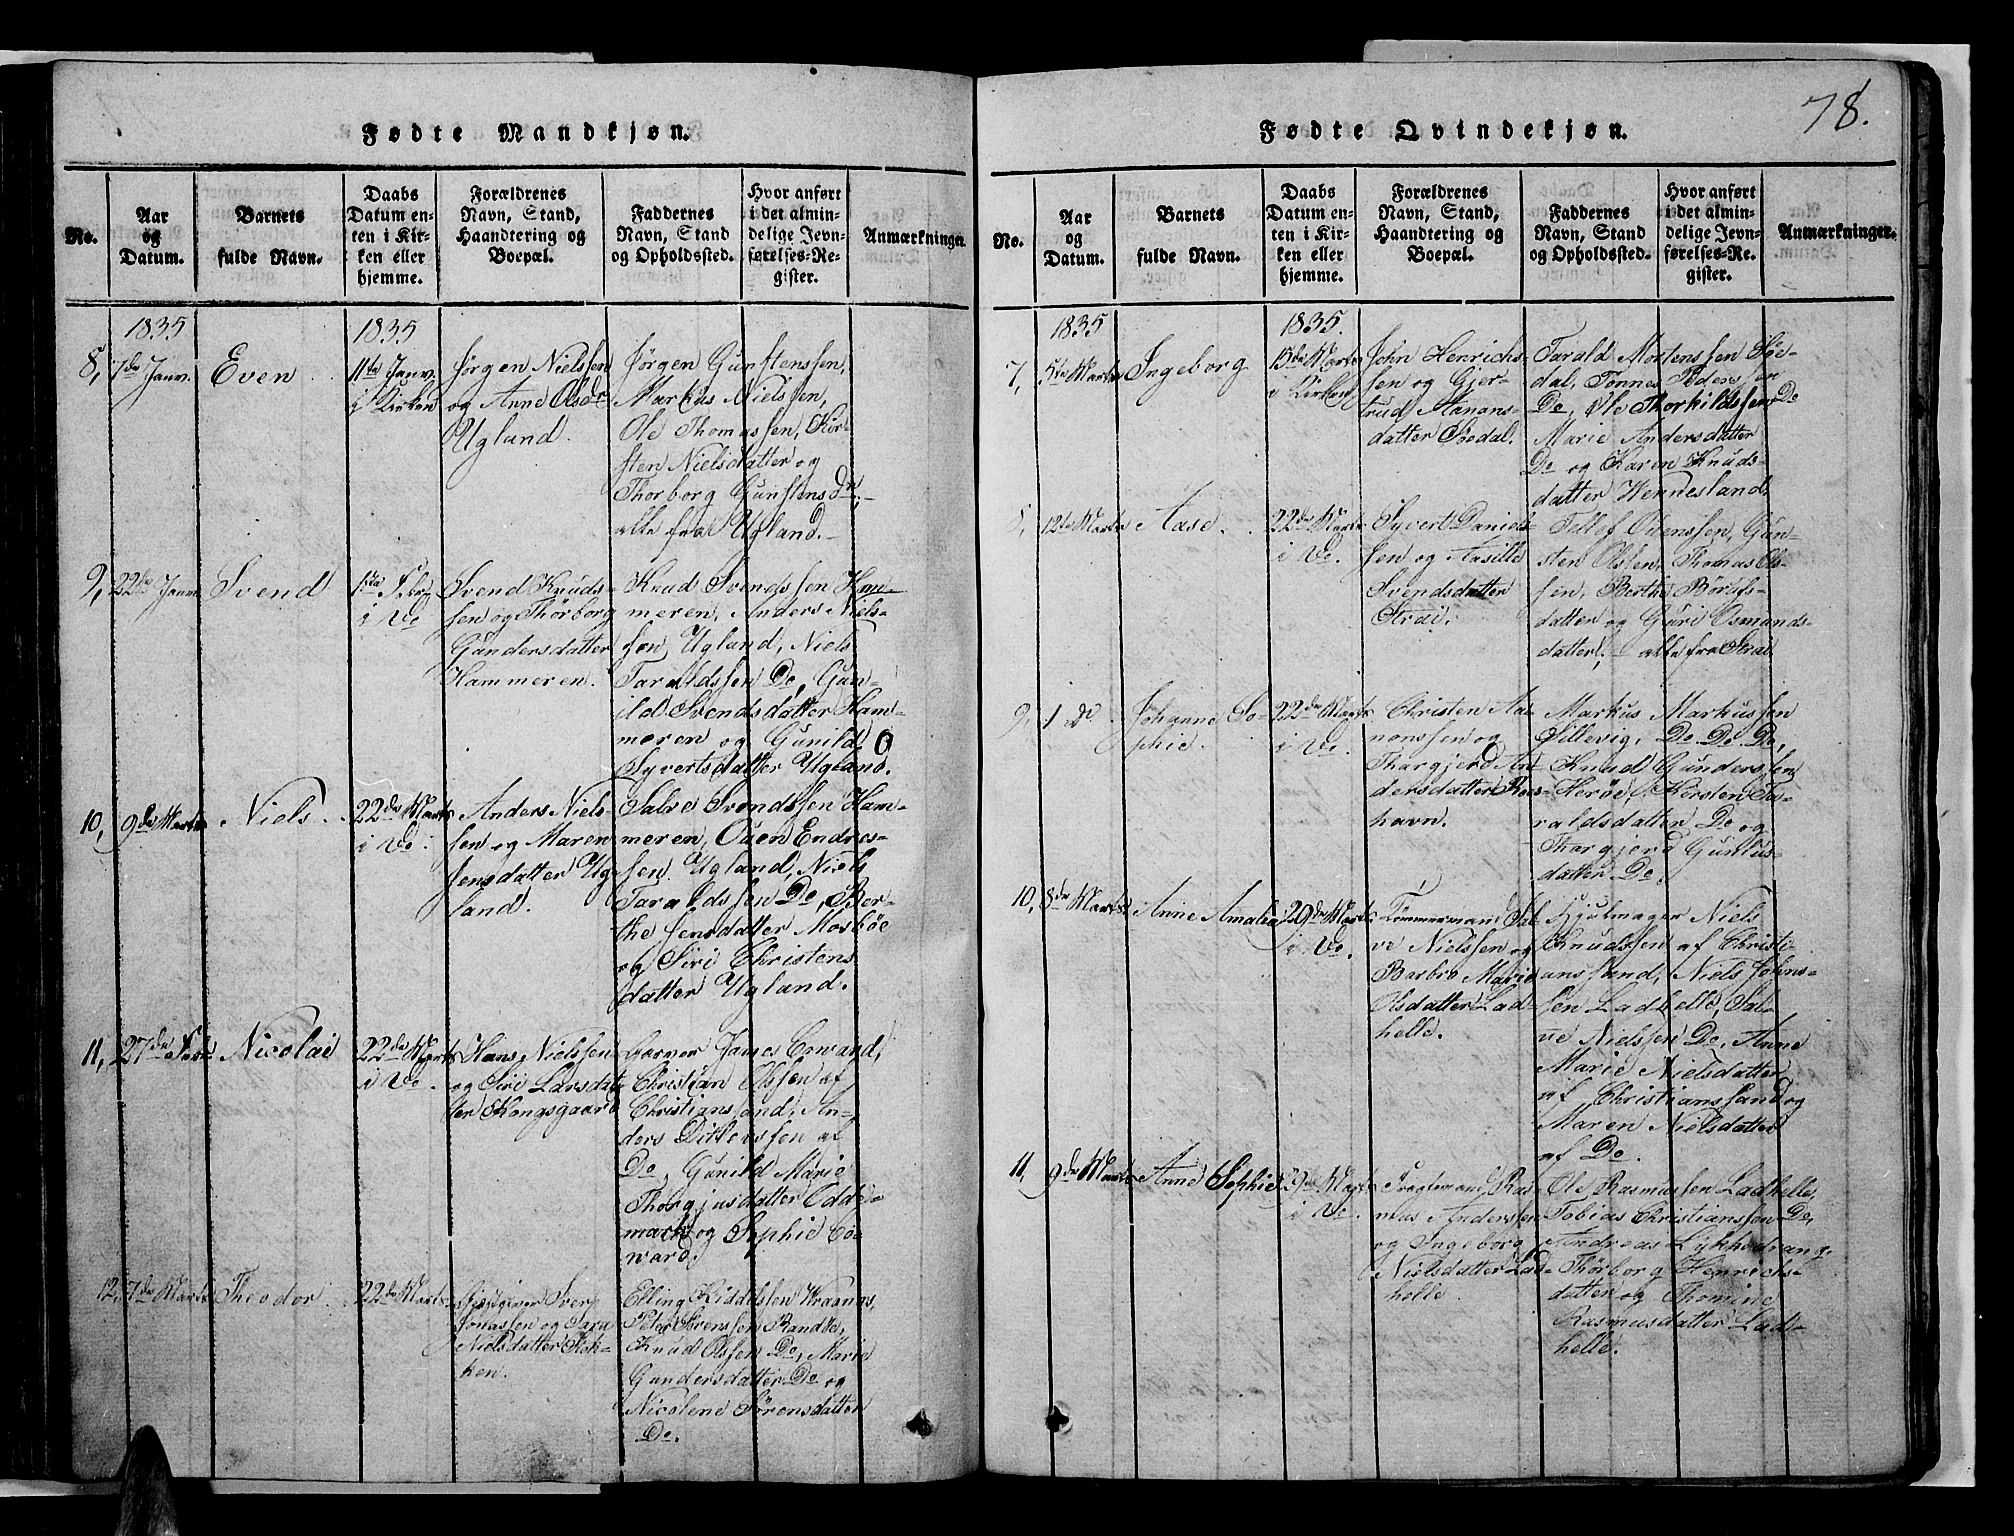 78.
Fødte Mandkjøn.
No.
Aar
og
Datum.
Barnets
fulde Navn.
Daabs
Datum en-
ten i Kir-
ken eller
hjemme.
Forældrenes
Navn, Stand,
Haandtering og
Boepæl.
Faddernes
Navn, Stand
og Opholdssted.
Hvor anført
i det almin-
delige Jevn-
førelses-Re-
gister.
Anmærkninger.
1835
1835
8,
7de Janv.
Even
11te Janv.
i Kirken
Jørgen Nielssen
og Anne Olsdr
Ugland.
Jørgen Gunstenssen,
Markus Nielssen,
Ole Thomassen, Kir-
sten Nielsdatter og
Thorborg Gunstensdr,
alle fra Ugland.
9,
22de Janv
Svend
1ste Febr
i Do
Svend Knuds-
sen og Thorborg
Gundersdatter
Hammeren.
Knud Svendssen Ham-
meren, Anders Niels-
sen Ugland, Niels
Taraldssen Do, Gun-
ild Svendsdatter Ham-
meren og Gunild
Syvertsdatter Ugland.
10,
9de Marts
Niels
22de Marts
i Do
Anders Niels-
sen og Maren
Jensdatter Ug-
land.
Salve Svendssen Ham-
meren, Oden Endres-
sen Ugland, Niels
Taraldssen Do, Ber-
the Jensdatter Mosbøe
og Siri Christens
datter Ugland.
11,
27de
Nicolai
22de Marts
i Do
Hans Nielssen
og Siri Larsdat-
ter Kongsgaard
Garver James Coward,
Christian Olssen af
Christianssand, An-
ders Ditlevssen af
Do, Gunild Marie
Thorgjusdatter Odder-
mark og Sophie Co-
ward.
12,
7de Marts
Theodor
22de Marts
Jonassen og Sara
Nielsdatter Kok-
ken.
Elling
Peter Sørenssen Randøe,
Knud Olssen Do, Marie
Gundersdatter Do og
Nicolene Sørensdatter
Do.
Fødte Qvindekjøn.
No.
Aar
og
Datum.
Barnets
fulde Navn.
Daabs
Datum en-
ten i Kir-
ken eller
hjemme.
Forældrenes
Navn, Stand,
Haandtering og
Boepæl.
Faddernes
Navn, Stand
og Opholdssted.
Hvor anført
i det almin-
delige Jevn-
førelses-Re-
gister.
Anmærkninger.
1835
1835.
7,
5te Marts
Ingeborg
15de Marts
i Kirken
John Henrichs-
sen og Gjer-
trud Aanans-
datter Søedal.
Tarald Mortenssen Søe-
dal, Tønnes Pederssen
Do, Ole Thorkildssen Do
Marie Andersdatter
Do og Karen Knuds-
datter Hennesland.
8,
12te Marts
Aase
22de Marts
i Do.
Syvert Daniels-
sen og Aasille
Svendsdatter
Strai.
Tellef Odenssen, Gun-
sten Olsen, Thomas Ols-
sen, Berthe
datter og Guri Osmunds-
datter, alle fra Strai
9,
1 Do
Johanne So-
phie.
22de Marts
i Do.
Christen Aa-
nonssen og
Thargjerd An-
dersdatter Ros-
havn.
Markus Markussen
Do. Do. Do,
Knud Gunderssen
Herøe, Kirsten Ta-
raldsdatter Do og
Thargjerd
datter Do.
10,
8de Marts
Anne Amalia
29de Marts
i Do.
Tømmermand Sal-
ve Nielssen og
Barbro Marie
Olsdatter Lad-
helle.
Hjulmager Niels
Knudssen af Christi-
anssand, Niels Johns-
sen Ladhelle, Sal-
ve Nielssen Do, Anne
Marie Nielsdatter
af Christianssand og
Maren Nielsdatter
af Do.
11,
9de Marts
Anne Sophie
29de Marts
i Do.
Ras-
mus Anderssen
og Ingeborg
Nielsdatter Lad-
helle
Ole Rasmussen Ladhelle,
Tobias Christianssen Do,
Andreas
Thorborg Henrichs-
datter og Thomine
Rasmusdatter Lad-
helle.